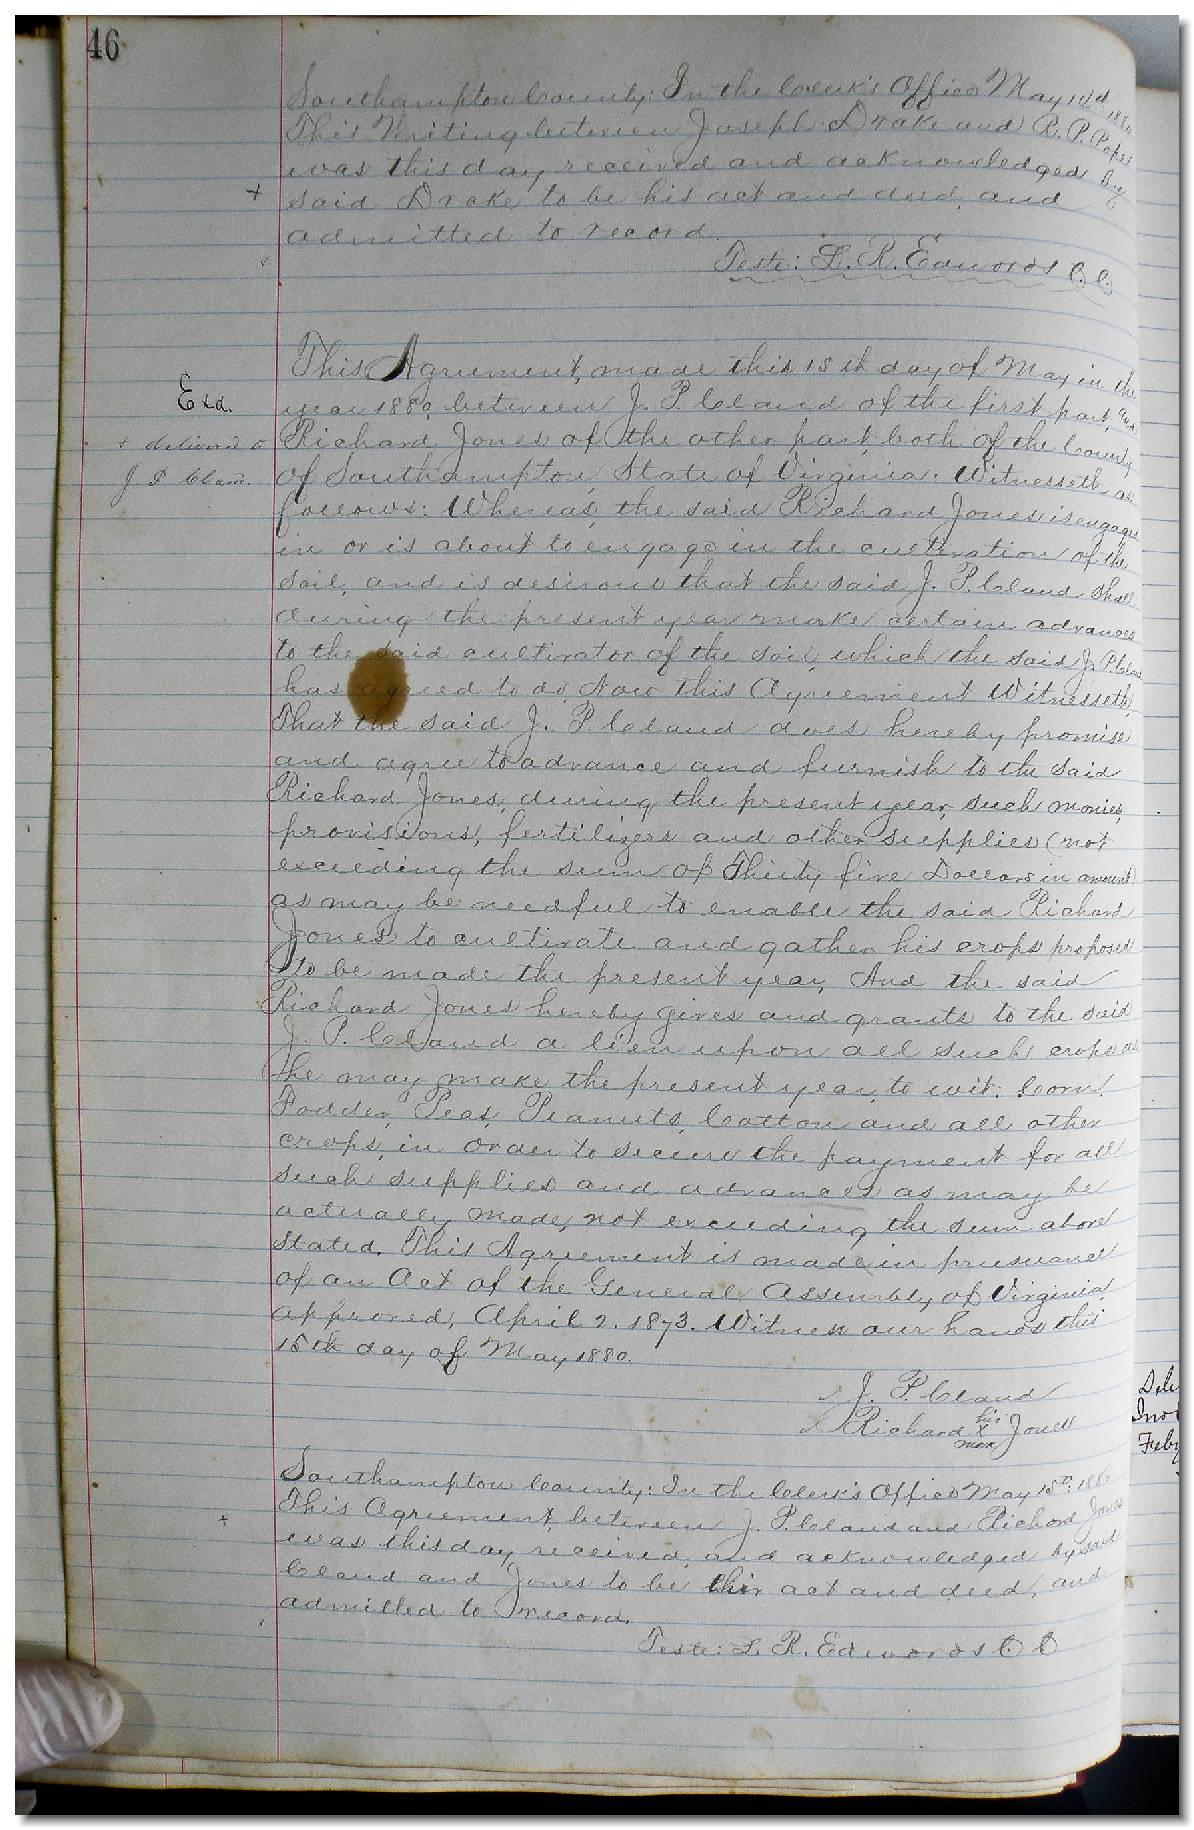 46
Southampton County: In the Clerk's Office May 1880
This Writing between Joseph Drake and R. P. Pope
was this day received and acknowledged by
+
said Drake to be his act and deed, and
admitted to record.
Teste: L. R. Edwards C. C.
This Agreement, made this 15th day of May in the
Exd.
year 1880, between J. P. Claud of the first part, and
+ delivered to
Richard Jones of the other part, both of the County
J P Claud.
of Southampton, State of Virginia. Witnesseth as
follows: Whereas, the said Richard Jones is engaged
in or is about to engage in the cultivation of the
soil, and is desirous that the said J. P. Claud shall
during the present year make certain advances
to the said cultivator of the soil, which the said J. P. Claud
has agreed to do, Now this Agreement Witnesseth,
That the said J. P. Claud does hereby promise
and agree to advance and furnish to the said
Richard Jones, during the present year, such monies,
provisions, fertilizers and other supplies (not
exceeding the sum of Thirty five Dollars in amount)
as may be needful to enable the said Richard
Jones to cultivate and gather his crops proposed
to be made the present year, And the said
Richard Jones hereby gives and grants to the said
J. P. Claud a lien upon all such crops as
he may make the present year, to wit: Corn,
Fodder, Peas, Peanuts, Cotton and all other
crops, in order to secure the payment for all
such supplies and advances as may be
actually made, not exceeding the sum above
stated. This Agreement is made in pursuance
of an Act of the General Assembly of Virginia,
approved, April 2. 1873. Witness our hands this
15th day of May 1880.
J. P. Claud
his
Richard X Jones
mark
Southampton County: In the Clerk's Office May 15th: 1880
This Agreement, between J. P. Claud and Richard Jones
+
was this day received, and acknowledged by said
Claud and Jones to be their act and deed, and
admitted to record.
Teste: L. R. Edwards C C